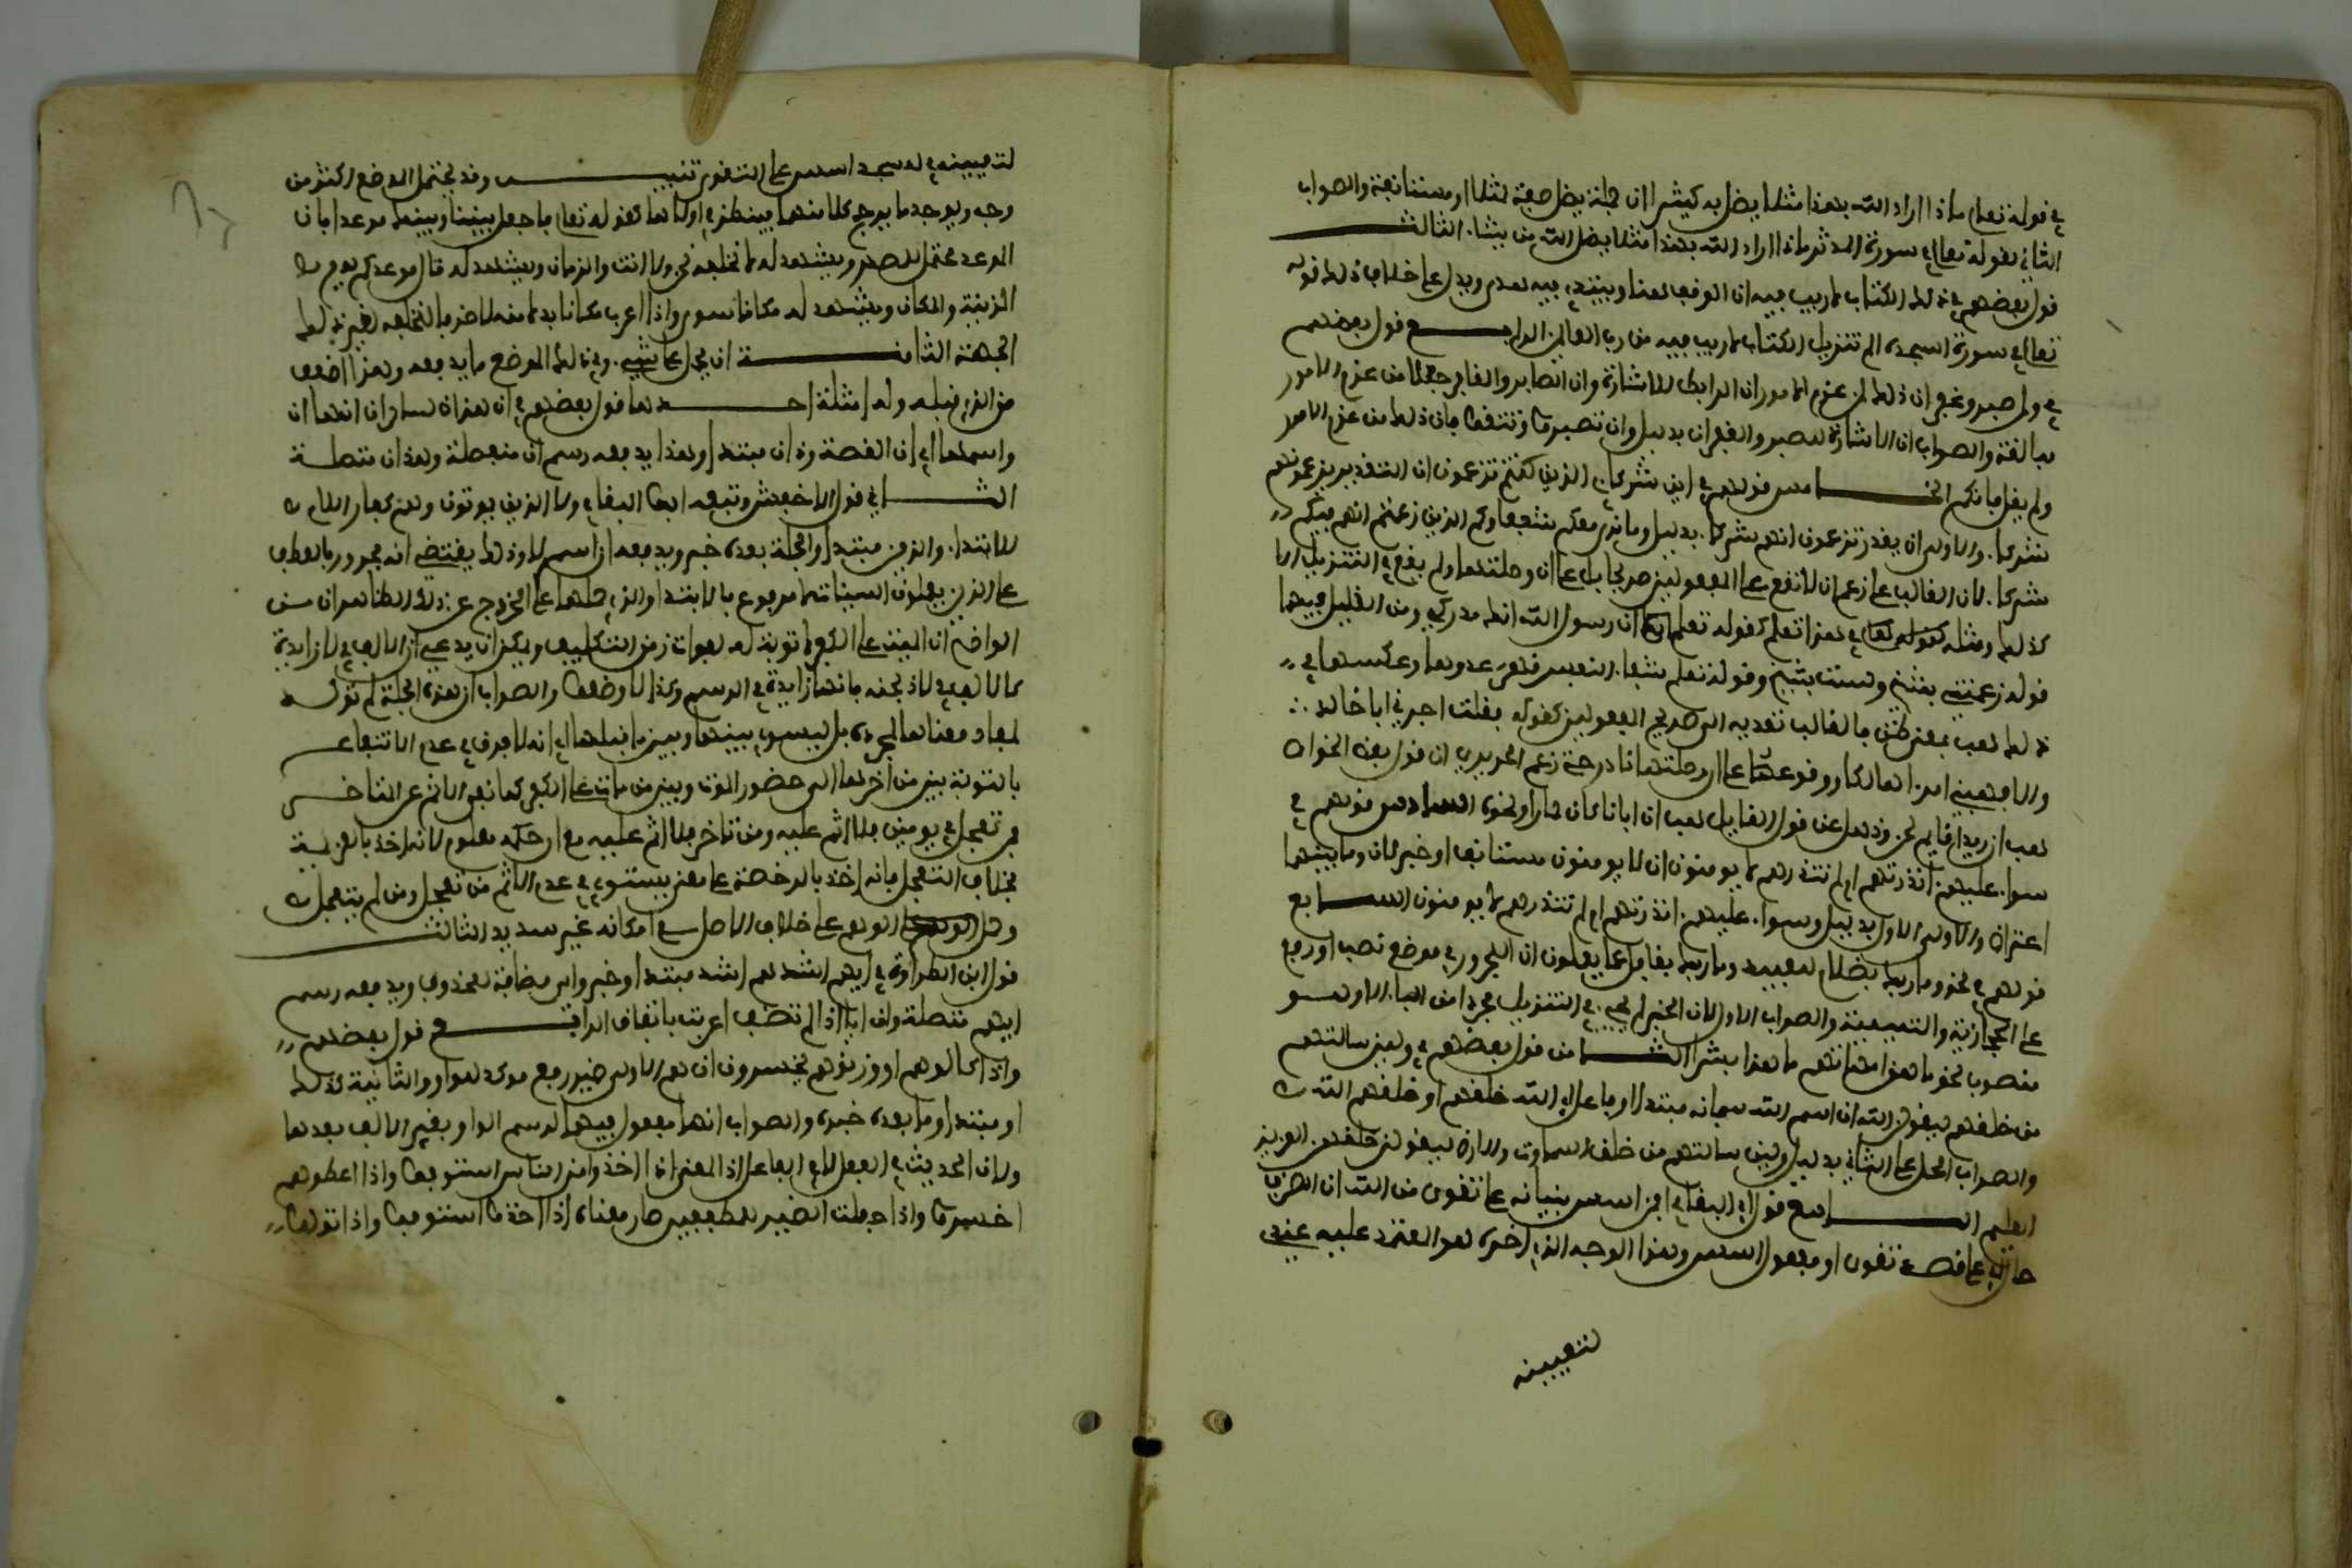 في قوله تعلى ماذا اراد الله بهذا مثلا يضل به كثيرا ان جملة يضل صفة لمثلا او مستانفة والصواب
الثاني لقوله تعلى في سورة المدثر ماذا اراد الله بهذا مثلا يضل الله من يشا. الثالث
قول بعضهم في ذلك الكتاب لا ريب فيه ان الوقف هنا ويبتدي فيه هدى ويدل على خلاف ذلك قوله
تعلى في سورة السجدة الم تنزيل الكتاب لا ريب فيه من رب العالمين الرابع قول بعضهم
في ولمن صبر وغفر ان ذلك لمن عزم الامور ان الرابط الاشارة وان الصابر والغافر جعلا من عزم الامور
مبالغة والصواب ان الاشارة للصبر والغفران بدليل وان تصبروا وتتقوا فان ذلك من عزم الامور
ولم يقل فانكم الخامس قولهم في اين شركاءي الذين كنتم تزعمون ان التقدير تزعمونهم
شركا. والاولى ان يقدر تزعمون انهم شركا. بدليل وما نرى معكم شفعاءكم الذين زعمتم انهم فيكم
شركا. لان الغالب على زعم ان لا تقع على المفعولين صريحا بل على ان وصلتها ولم يقع في التنزيل الا
كذلك ومثله في هذا تعلم كقوله تعلم ان رسول الله انك مدركي ومن القليل فيهما
قوله زعمتني شيخا ولست بشيخ وقوله تعلم شفا. النفس قهر عدوها وعكسهما في
ذلك هب بمعنى ظن فالغالب تعديه الى صريح المفعولين كقوله فقلت اجرني ابا خالد
والا فهبني امرا هالكا ووقوعها على ان وصلتها نادر حتى زعم الحريري ان قول بعض الخواص
هب ان زيدا قايم لحن وذهل عن قول القايل هب ان ابانا كان حمارا ونحوه السادس قولهم في
سوا. عليهم. انذرتهم ام لم تنذرهم لا يومنون ان لا يومنون مستانف او خبر لان وما بينهما
اعتراض والاولى الاول بدليل وسوا. عليهم. انذرتهم ام لم تنذرهم لا يومنون السابع
قولهم في نحو وما ربك بظلام للعبيد وما ربك بغافل عما يعملون ان المجرور في موضع نصب او رفع
على الحجازية والتميمية والصواب الاول لان الخبر لم يجي. في التنزيل مجردا من البا. الا وهو
منصوب نحو ما هن امهاتهم ما هذا بشرا الثامن قول بعضهم في ولين سالتهم
من خلقهم ليقولن الله ان اسم الله سبحانه مبتدا او فاعل اي الله خلقهم او خلقهم الله
والصواب الحمل على الثاني بدليل ولين سالتهم من خلق السماوات والارض ليقولن خلقهن العزيز
العليم التاسع قول ابي البقا في افمن اسس بنيانه على تقوى من الله ان الظرف
حال اي على قصد تقوى او مفعول اسس وهذا الوجه الذي اخره هو المعتمد عليه عندي
لتعيينه
لتعيينه في لمسجد اسس على التقوى تنبيه وقد يحتمل الموضع اكثر من
وجه ويوجد ما يرجح كلا منهما فينظر في اولاها كقوله تعلى فاجعل بيننا وبينك موعدا فان
الموعد محتمل للمصدر ويشهد له لا نخلفه نحن ولا انت وللزمان ويشهد له قال موعدكم يوم
الزينة وللمكان ويشهد له مكانا سوى واذا اعرب مكانا بدلا منه لا ظرفا لنخلفه تعين ذلك
الجهة الثامنة ان يحمل على شيء. وفي ذلك الموضع ما يدفعه وهذا اصعب
من الذي قبله وله امثلة احدها قول بعضهم في ان هذان لساحران انها ان
واسمها اي ان القصة وذان مبتدا وهذا يدفعه رسم ان منفصلة وهذان متصلة
الثاني قول الاخفش وتبعه ابو البقا في ولا الذين يموتون وهم كفار ان اللام
للابتدا. والذين مبتدا والجملة بعده خبر ويدفعه ان الرسم ولا وذلك يقتضي انه مجرور بالعطف
على الذين يعملون السيئات لا مرفوع بالابتدا والذي حملهما على الخروج عن ذلك الظاهر ان من
الواضح ان الميت على الكفر لا توبة له لفوات زمن التكليف ويمكن ان يدعى ان الالف في لا زايدة
كالالف في لاذبحنه فانها زايدة في الرسم وكذا لاوضعوا والصواب ان هذه الجملة لم تذكر
لمفاد معناها بمجرده بل ليسوى بينها وبين ما قبلها اي انه لا فرق في عدم الانتفاع
بالتوبة بين من اخرها الى حضور الموت وبين من مات على الكفر كما نفي الاثم عن المتاخر
في من تعجل في يومين فلا اثم عليه ومن تاخر فلا اثم عليه مع ان حكمه معلوم لانه اخذ بالعزيمة
بخلاف المتعجل فانه اخذ بالرخصة على معنى يستوي في عدم الاثم من تعجل ومن لم يتعجل
وحمل الرسم على خلاف الاصل مع امكانه غير سديد الثالث
قول ابن الطراوة في ايهم اشد هم اشد مبتدا وخبر واي مضافة لمحذوف ويدفعه رسم
ايهم متصلة وان ايا اذا لم تضف اعربت باتفاق الرابع قول بعضهم
واذا كالوهم او وزنوهم يخسرون ان هم الاولى ضمير رفع موكد للواو والثانية كذلك
او مبتدا وما بعده خبره والصواب انها مفعول فيهما لرسم الواو بغير الالف بعدها
ولان الحديث في الفعل لا في الفاعل اذ المعنى اذا اخذوا من الناس استوفوا واذا اعطوهم
اخسروا واذا جعلت الضمير للمطففين صار معناه اذا اخذوا استوفوا واذا تولوا